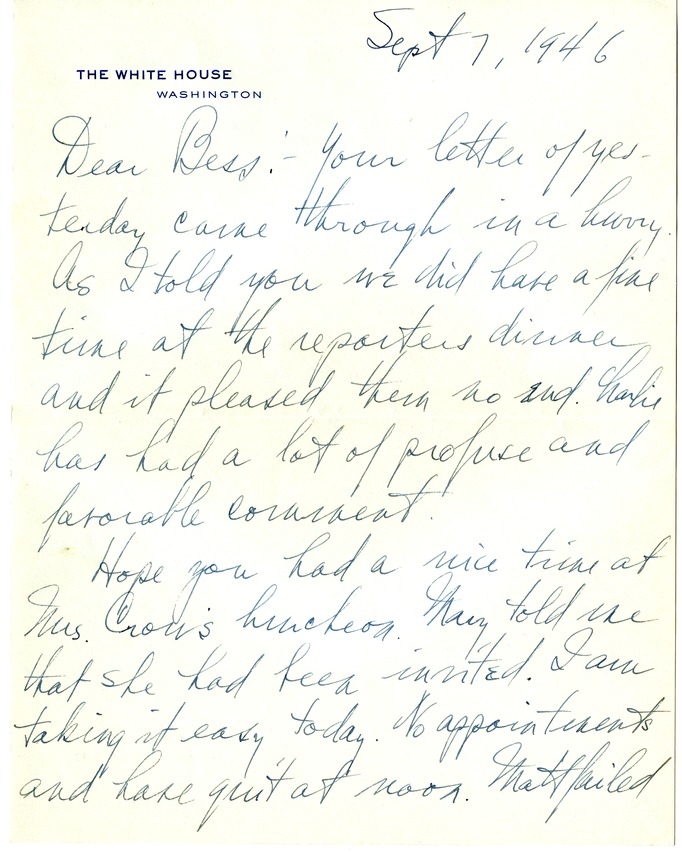 Sept 7, 1946
THE WHITE HOUSE
WASHINGTON
Dear Bess:- Your letter of yes-
terday came through in a hurry.
As I told you we did have a fine
time at the reporters dinner
and it pleased them no end. Charlie
has had a lot of profuse and
favorable comment.
Hope you had a nice time at
Mrs. Crow's luncheon. Mary told me
that she had been invited. I am
taking it easy today. No appointments
and have quit at noon. Matt failed